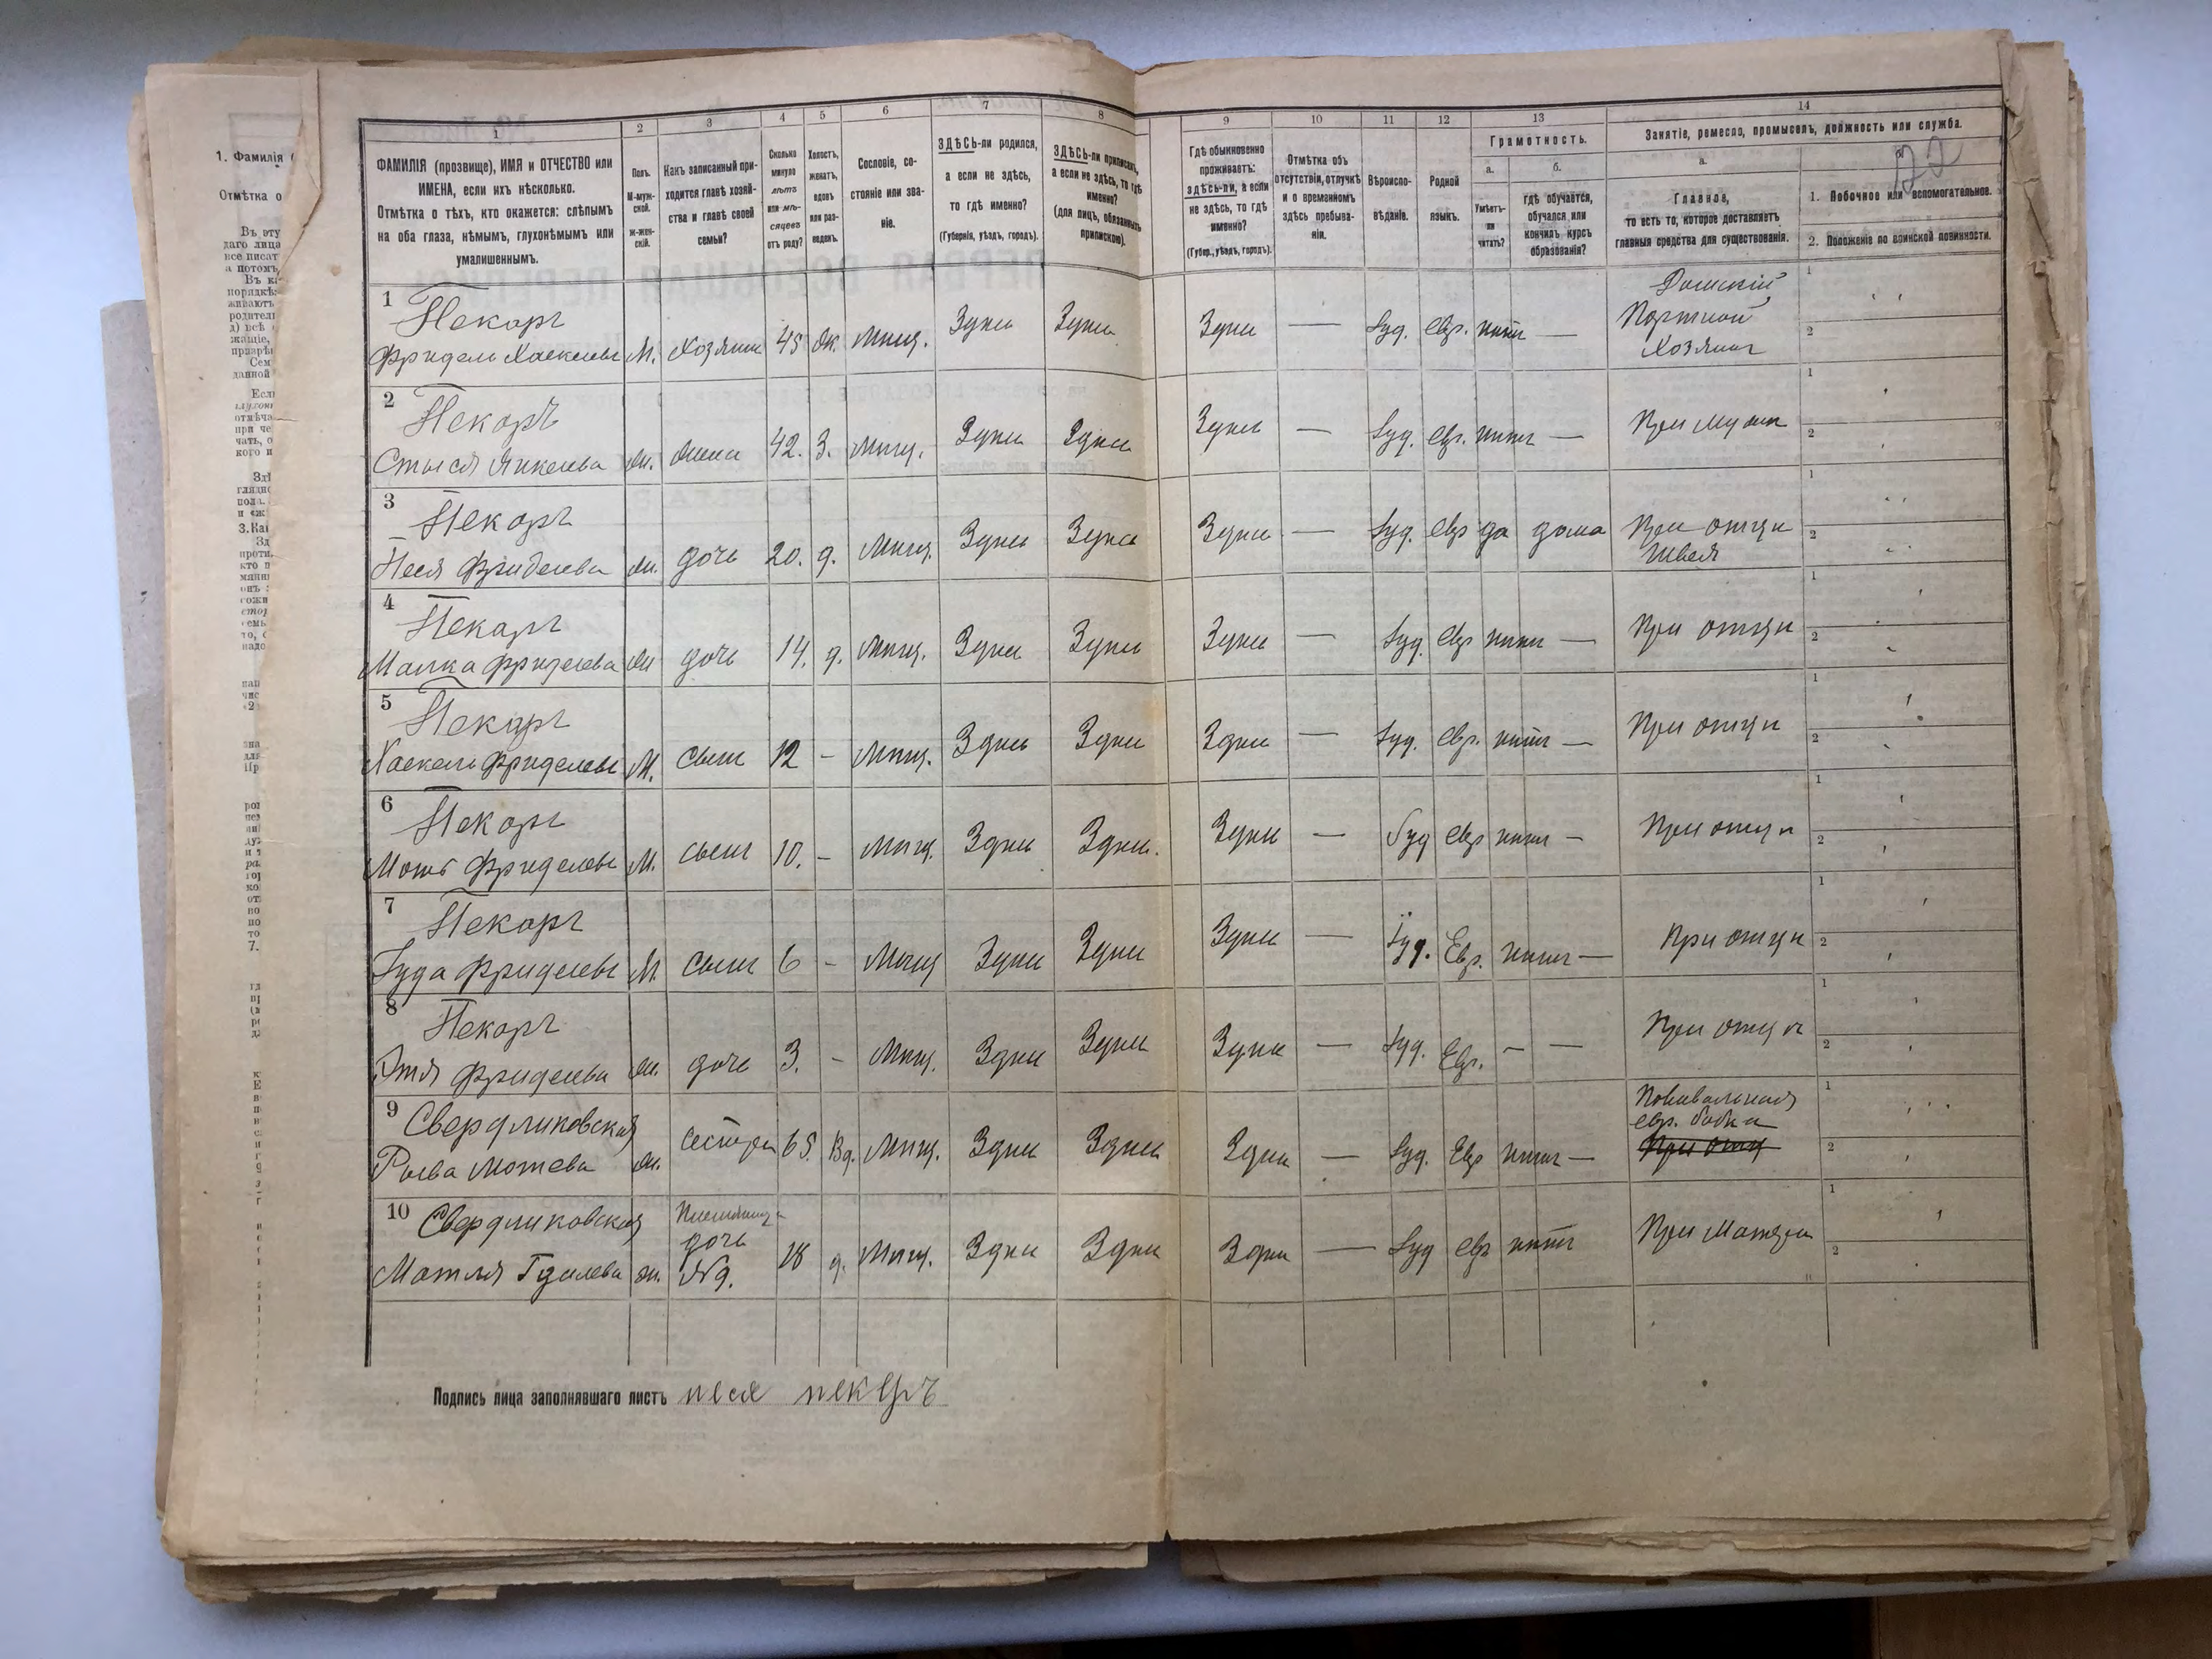 1 2 3 4 5 6 7 8 9 10 11 12 13 14
ФАМИЛІЯ (прозвище), ИМЯ и ОТЧЕСТВО или ИМЕНА, если ихъ нѣсколько.
Отмѣтка о тѣхъ, кто окажется: слѣпымъ на оба глаза, нѣмымъ, глухонѣмымъ или умалишеннымъ.
Полъ. М-мужской. Ж-женскій.
Какъ записанный приходится главѣ хозяйства и главѣ своей семьи?
Сколько минуло лѣтъ или мѣсяцевъ отъ роду?
Холостъ, женатъ, вдовъ или разведенъ.
Сословіе, состояніе или званіе.
ЗДѢСЬ-ли родился, а если не здѣсь, то гдѣ именно?
(Губернія, уѣздъ, городъ).
ЗДѢСЬ-ли приписанъ, а если не здѣсь, то гдѣ именно?
(для лицъ, обязанныхъ припискою).
Гдѣ обыкновенно проживаетъ: здѣсь-ли, а если не здѣсь, то гдѣ именно?
(Губер., уѣздъ, городъ).
Отмѣтка объ отсутствіи, отлучкѣ и о временномъ здѣсь пребываніи.
Вѣроисповѣданіе.
Родной языкъ.
Грамотность.
а. Умѣетъ-ли читать?
б. гдѣ обучается, обучался или кончилъ курсъ образованія?
Занятіе, ремесло, промыселъ, должность или служба.
а. Главное, то есть то, которое доставляетъ главныя средства для существованія.
б. 1. Побочное или вспомогательное.
2. Положеніе по воинской повинности.
1 Пекарь Фридель Хаскелевъ М. Хозяинъ 45 Ж. Мѣщ. Здѣсь Здѣсь Здѣсь — Іуд. Евр. нѣтъ — Портной Хозяинъ
2 Пекарь Стыся Янкелева Ж. жена 42. З. Мѣщ. Здѣсь Здѣсь Здѣсь — Іуд. Евр. нѣтъ — При мужѣ
3 Пекарь Песя Фриделева Ж. дочь 20. д. Мѣщ. Здѣсь Здѣсь Здѣсь — Іуд. Евр да дома При отцѣ Швея
4 Пекарь Малка Фриделева Ж дочь 14. д. Мѣщ. Здѣсь Здѣсь Здѣсь — Іуд. Евр нѣтъ — При отцѣ
5 Пекарь Хаскель Фриделевъ М. сынъ 12 - Мѣщ. Здѣсь Здѣсь Здѣсь — Іуд. Евр. нѣтъ — При отцѣ
6 Пекарь Моть Фриделевъ М. сынъ 10. - Мѣщ. Здѣсь Здѣсь. Здѣсь — Іуд Евр нѣтъ — При отцѣ
7 Пекарь Іуда Фриделевъ М. сынъ 6 - Мѣщ Здѣсь Здѣсь Здѣсь — Іуд. Евр. нѣтъ — При отцѣ
8 Пекарь Этя Фриделева Ж. дочь 3. - Мѣщ. Здѣсь Здѣсь Здѣсь — Іуд. Евр. — — При отцѣ
9 Свердликовская Рыва Мотева Ж. сестра 65. Вд. Мѣщ. Здѣсь Здѣсь Здѣсь — Іуд. Евр нѣтъ — Повивальная евр. бабка
10 Свердликовская Мотля Гдалева Ж. Племянница дочь №9. 18 д. Мѣщ. Здѣсь Здѣсь Здѣсь — Іуд Евр нѣтъ При Матери
Подпись лица заполнявшаго листъ песя пекарь